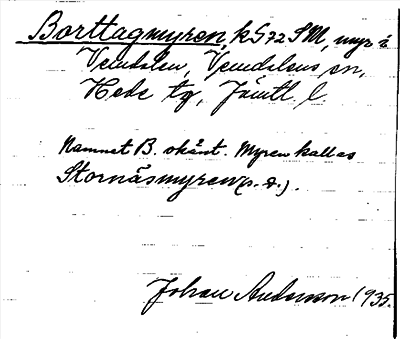 Borttagmyren, k S 72 SM, myr i
Vemdalen, Vemdalens sn,
Hede tg, Jämtl. l.
Namnet B. okänt. Myren kallas
Stornäsmyren (s. d.).
Johan Andersson 1935.